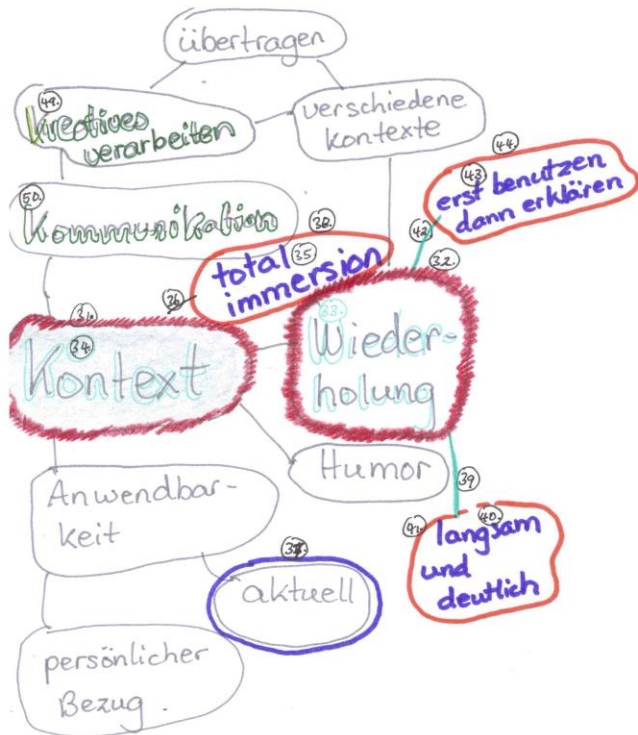 übertragen
49.
kreatives
verarbeiten
verschiedene
kontexte
44.
43
erst benutzen
dann erklären
42
50.
Kommunikation
38.
total 35
immersion
36
32.
31.
34.
Kontext
33.
Wieder-
holung
Humor
39
Anwendbar-
keit
41. 40.
langsam
und
deutlich
aktuell
persönlicher
Bezug.